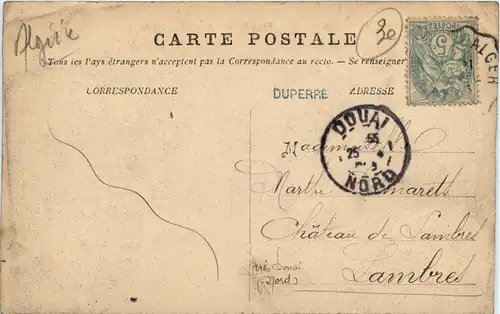 Algérie
30
CARTE POSTALE
Tous les Pays étrangers n'acceptent pas la Correspondance au recto. — Se renseigner
ALGER
5
CORRESPONDANCE
DUPERRÉ
ADRESSE
DOUAI
25
NORD
Mademoiselle
Marthe
Château de Lambres
Lambres
près Douai
(Nord)